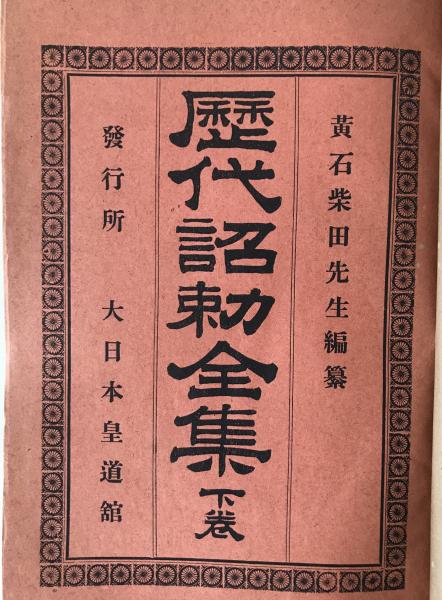 黃石柴田先生編纂
歷代詔勅全集下卷
發行所 大日本皇道館